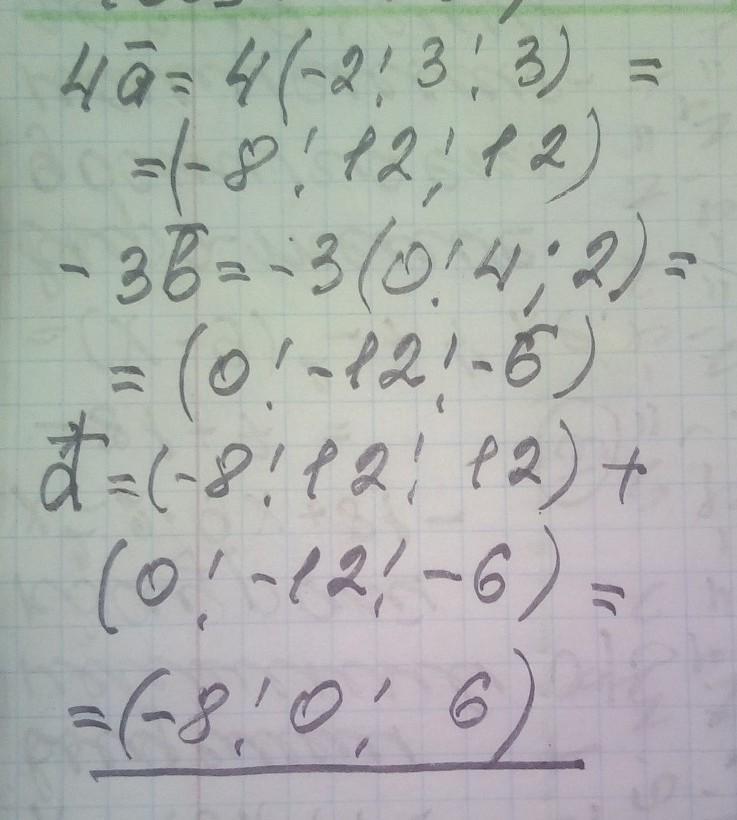 4ā = 4(-2; 3; 3) =
= (-8; 12; 12)
- 3b̄ = -3(0; 4; 2) =
= (0; -12; -6)
d⃗ = (-8; 12; 12) +
(0; -12; -6) =
= (-8; 0; 6)